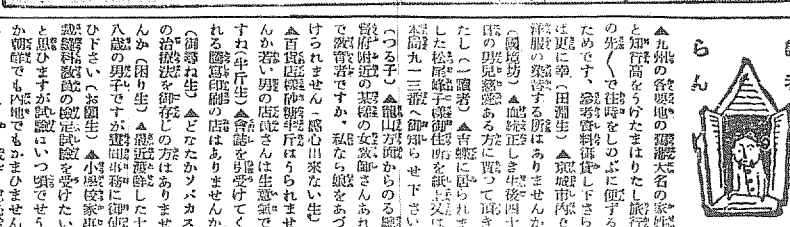 者
らん
▲九州の各要地の舊藩大名の家姓
と知行高をうけたまはりたし旅行
の先〱で往時をしのぶに便ずる
ためです、參考資料御貸し下さら
ば更に幸(田淵生)▲京城市内で
洋服の染替する所はありませんか
(國境坊)▲血統正しき生後四十
日の男兒慈愛ある方に貰つて頂き
たし(一讀者)▲吉州に居られま
した松尾峰子樣御住所を紙上又は
本局九一三番へ御知らせ下さい
(つる子)▲龍山方面からのる總
督府附近の某校の女教師さんあれ
で教育者ですか、私なら娘をあづ
けられません(感心出來ない生)
▲百貨店砂糖半斤はうられませ
んか若い男の店員さんは生意氣で
すね(半斤生)▲會誌を引受けてく
れる謄寫印刷の店はありませんか
(御尋ね生)▲どなたかソバカス
の治療法を御存じの方はありませ
んか(困り生)▲最近渡鮮した十
八歳の男子ですが晝間事務に御使
ひ下さい(お願生)▲小學校家事
裁縫科教員の檢定試驗を受けたい
と思ひますが試驗はいつ頃でせう
か朝鮮でも内地でもかまひません